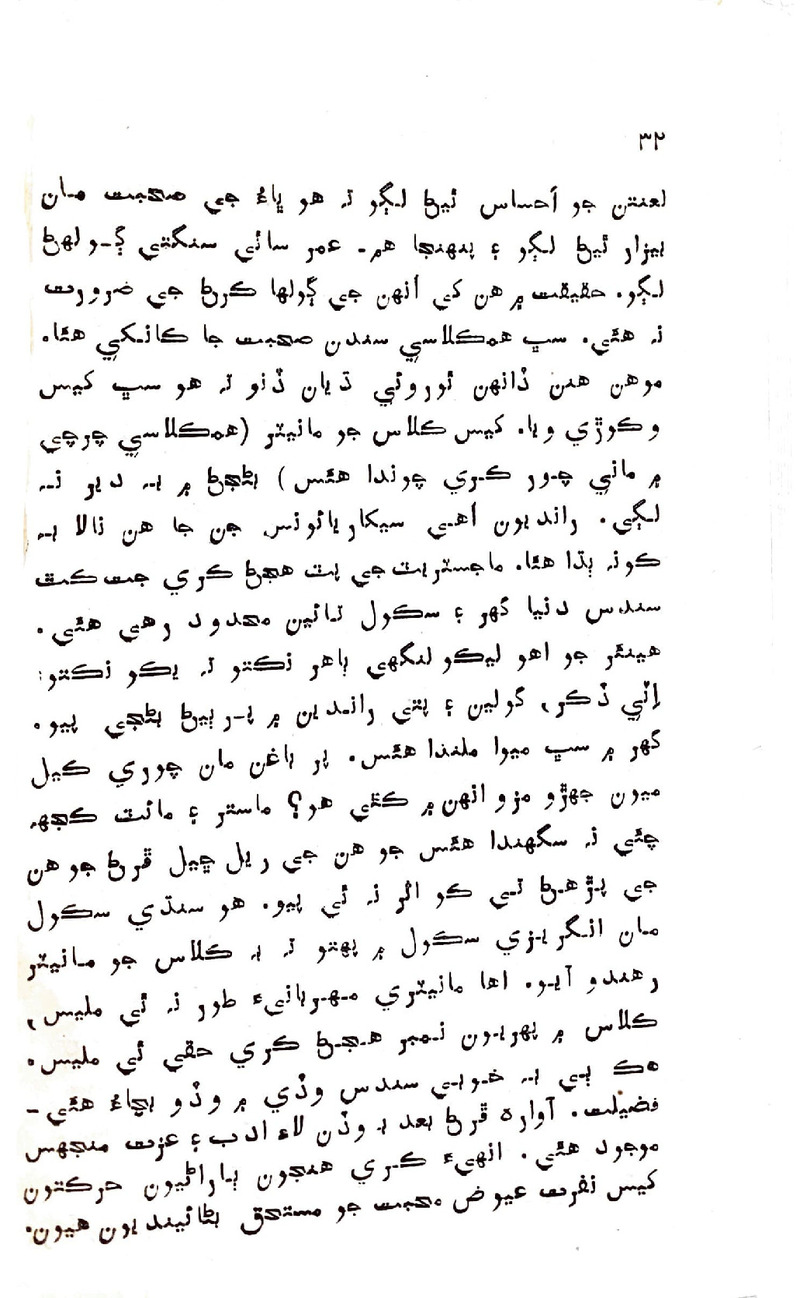 ٣٢
لعنتن جو احساس ٿيڻ لڳو تہ هو ڀاءُ جي صحبت مان
بيزار ٿيڻ لڳو ۽ پنهنجا هم- عمر ساٿي سنگتي ڳولهڻ
لڳو. حقيقت ۾ هن کي اُنهن جي ڳولها ڪرڻ جي ضرورت
نہ هئي. سڀ همڪلاسي سندن صحبت جا کانئکي هئا.
موهن هنن ڏانهن ٿوروئي ڌيان ڏنو تہ هو سڀ کيس
وڪوڙي ويا. کيس ڪلاس جو مانيٽر (همڪلاسي چرچي
۾ ماني چور ڪري چوندا هئس) بڻجڻ ۾ بہ دير نہ
لڳي. رانديون اُهي سيکاريائونس جن جا هن نالا بہ
ڪونہ ٻڌا هئا. ماجستريٽ جي پٽ هجڻ ڪري جت ڪٿ
سندس دنيا گهر ۽ سڪول تائين محدود رهي هئي.
هينئر جو اهو ليڪو لنگهي ٻاهر نڪتو تہ پڪو نڪتو:
اِٽي ڏڪر، گولين ۽ پتي راندين ۾ پربين بڻجي پيو.
گهر ۾ سڀ ميوا ملندا هئس. پر باغن مان چوري ڪيل
ميون جهڙو مزو انهن ۾ ڪٿي هو؟ ماستر ۽ مائٽ ڪجهہ
چئي نہ سگهندا هئس جو هن جي ريل ڇيل ڦرڻ جو هن
جي پڙهڻ تي ڪو اثر نہ ٿي پيو. هو سنڌي سڪول
مان انگريزي سڪول ۾ پهتو تہ بہ ڪلاس جو مانيٽر
رهندو آيو. اها مانيٽري مهربانيءَ طور نہ ٿي مليس،
ڪلاس ۾ پهريون نمبر هجڻ ڪري حقي ٿي مليس.
هڪ ٻي بہ خوبي سندس وڏي ۾ وڏو بچاءُ هئي-
فضيلت. آواره ڦرڻ بعد بہ وڏن لاءِ ادب ۽ عزت منجهس
موجود هئي. انهيءَ ڪري هنجون ٻاراڻيون حرڪتون
کيس نفرت عيوض محبت جو مستحق بڻائينديون هيون.